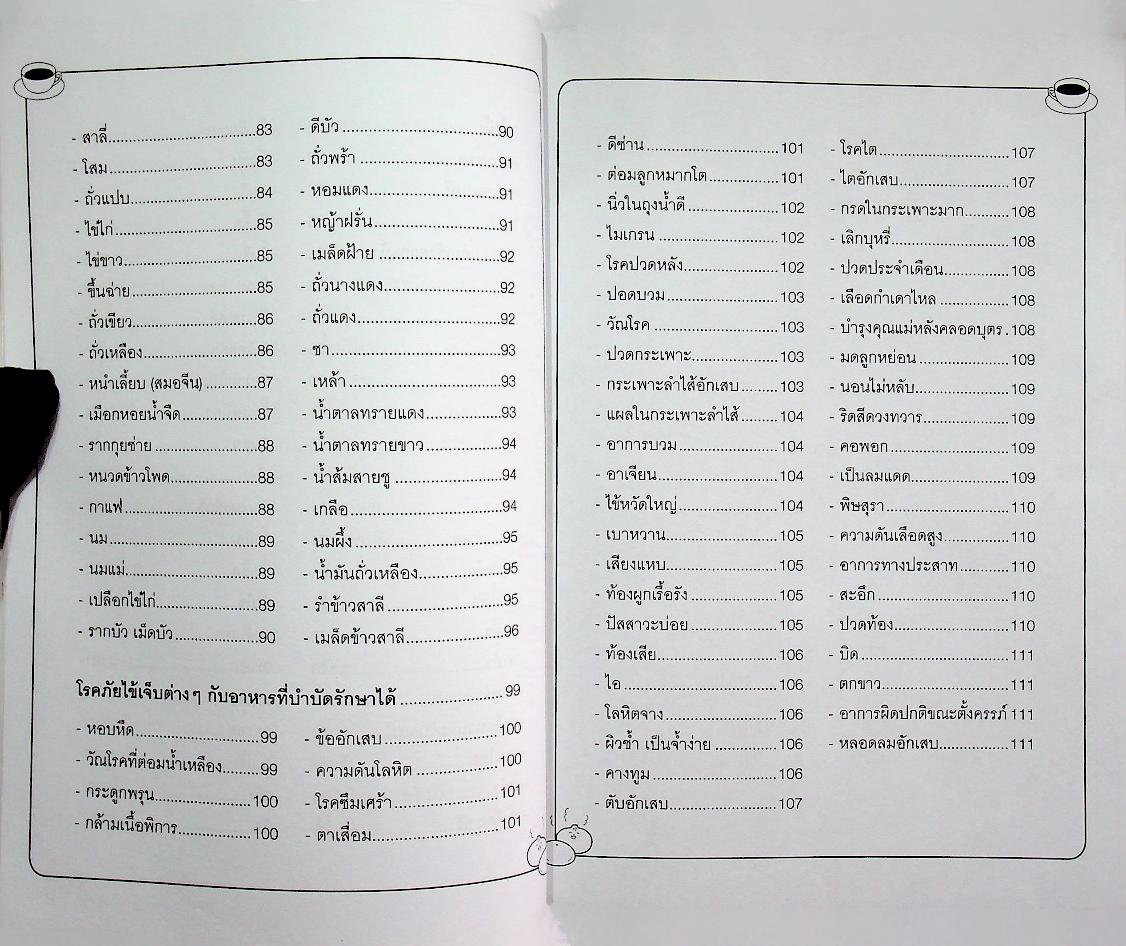 - สาลี่ 83
- โสม 83
- ถั่วแปบ 84
- ไข่ไก่ 85
- ไข่ขาว 85
- ขึ้นฉ่าย 85
- ถั่วเขียว 86
- ถั่วเหลือง 86
- หนำเลี้ยบ (สมอจีน) 87
- เมือกหอยน้ำจืด 87
- รากกุยช่าย 88
- หนวดข้าวโพด 88
- กาแฟ 88
- นม 89
- นมแม่ 89
- เปลือกไข่ไก่ 89
- รากบัว เม็ดบัว 90
- ดีบัว 90
- ถั่วพร้า 91
- หอมแดง 91
- หญ้าฝรั่น 91
- เมล็ดฝ้าย 92
- ถั่วนางแดง 92
- ถั่วแดง 92
- ชา 93
- เหล้า 93
- น้ำตาลทรายแดง 93
- น้ำตาลทรายขาว 94
- น้ำส้มสายชู 94
- เกลือ 94
- นมผึ้ง 95
- น้ำมันถั่วเหลือง 95
- รำข้าวสาลี 95
- เมล็ดข้าวสาลี 96
โรคภัยไข้เจ็บต่างๆ กับอาหารที่บำบัดรักษาได้ 99
- หอบหืด 99
- วัณโรคที่ต่อมน้ำเหลือง 99
- กระดูกพรุน 100
- กล้ามเนื้อพิการ 100
- ข้ออักเสบ 100
- ความดันโลหิต 100
- โรคซึมเศร้า 101
- ตาเสื่อม 101
- ดีซ่าน 101
- ต่อมลูกหมากโต 101
- นิ่วในถุงน้ำดี 102
- ไมเกรน 102
- โรคปวดหลัง 102
- ปอดบวม 103
- วัณโรค 103
- ปวดกระเพาะ 103
- กระเพาะลำไส้อักเสบ 103
- แผลในกระเพาะลำไส้ 104
- อาการบวม 104
- อาเจียน 104
- ไข้หวัดใหญ่ 104
- เบาหวาน 105
- เสียงแหบ 105
- ท้องผูกเรื้อรัง 105
- ปัสสาวะบ่อย 105
- ท้องเสีย 106
- ไอ 106
- โลหิตจาง 106
- ผิวช้ำ เป็นจ้ำง่าย 106
- คางทูม 106
- ตับอักเสบ 107
- โรคไต 107
- ไตอักเสบ 107
- กรดในกระเพาะมาก 108
- เลิกบุหรี่ 108
- ปวดประจำเดือน 108
- เลือดกำเดาไหล 108
- บำรุงคุณแม่หลังคลอดบุตร 108
- มดลูกหย่อน 109
- นอนไม่หลับ 109
- ริดสีดวงทวาร 109
- คอพอก 109
- เป็นลมแดด 109
- พิษสุรา 110
- ความดันเลือดสูง 110
- อาการทางประสาท 110
- สะอึก 110
- ปวดท้อง 110
- บิด 111
- ตกขาว 111
- อาการผิดปกติขณะตั้งครรภ์ 111
- หลอดลมอักเสบ 111